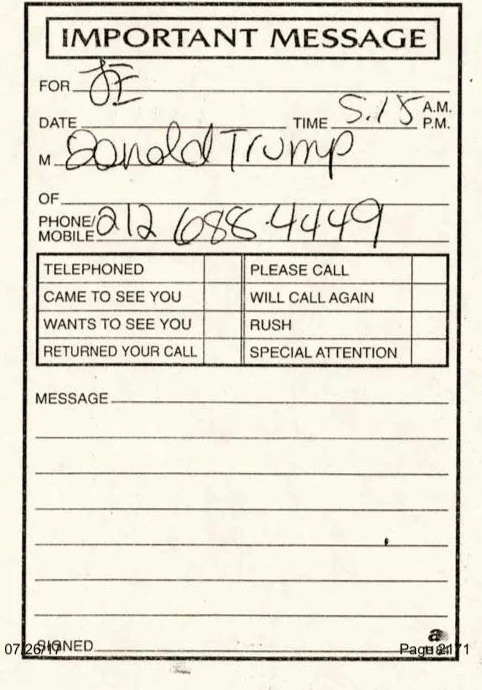 IMPORTANT MESSAGE
FOR JE
A.M.
DATE TIME 5:15 P.M.
M Donald Trump
OF
PHONE/
MOBILE 212 688-4449
TELEPHONED PLEASE CALL
CAME TO SEE YOU WILL CALL AGAIN
WANTS TO SEE YOU RUSH
RETURNED YOUR CALL SPECIAL ATTENTION
MESSAGE
SIGNED
07/26/17